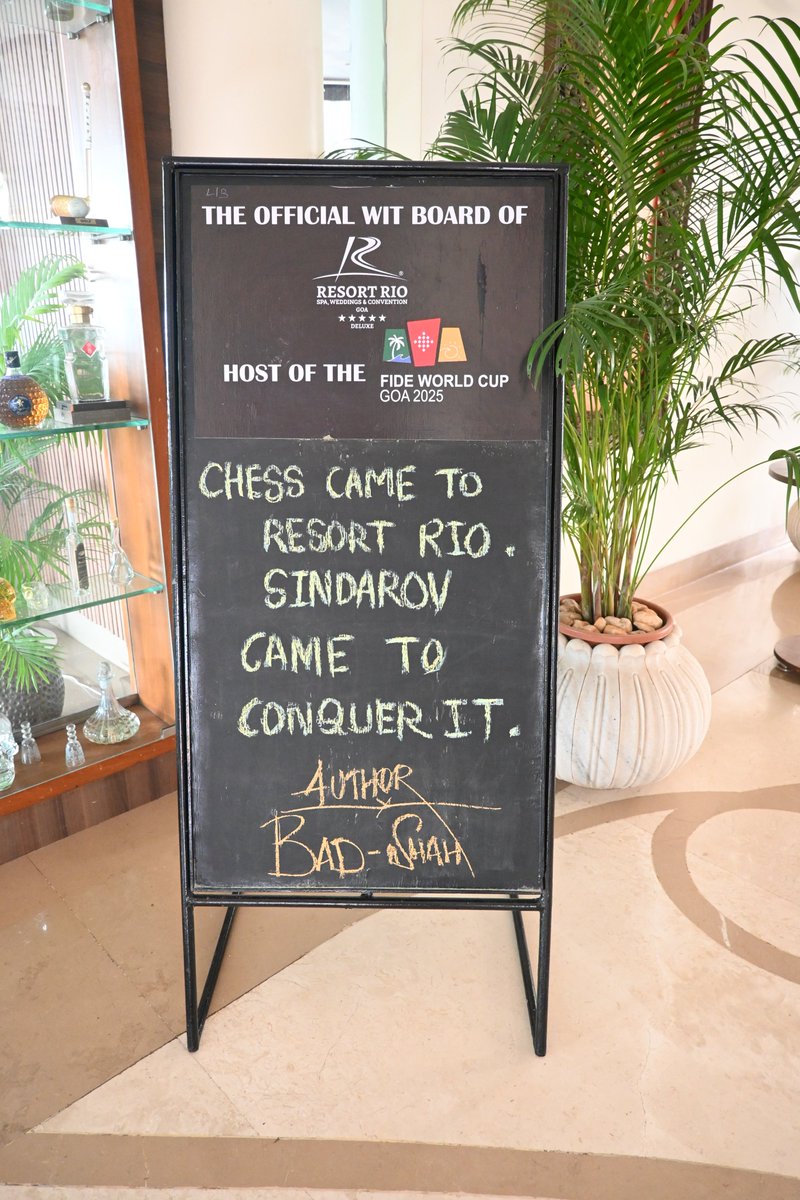 THE OFFICIAL WIT BOARD OF
RESORT RIO®
SPA, WEDDINGS & CONVENTION
GOA
★★★★★
DELUXE
HOST OF THE
FIDE WORLD CUP
GOA 2025
CHESS CAME TO
RESORT RIO.
SINDAROV
CAME TO
CONQUER IT.
AUTHOR
BAD-SHAH